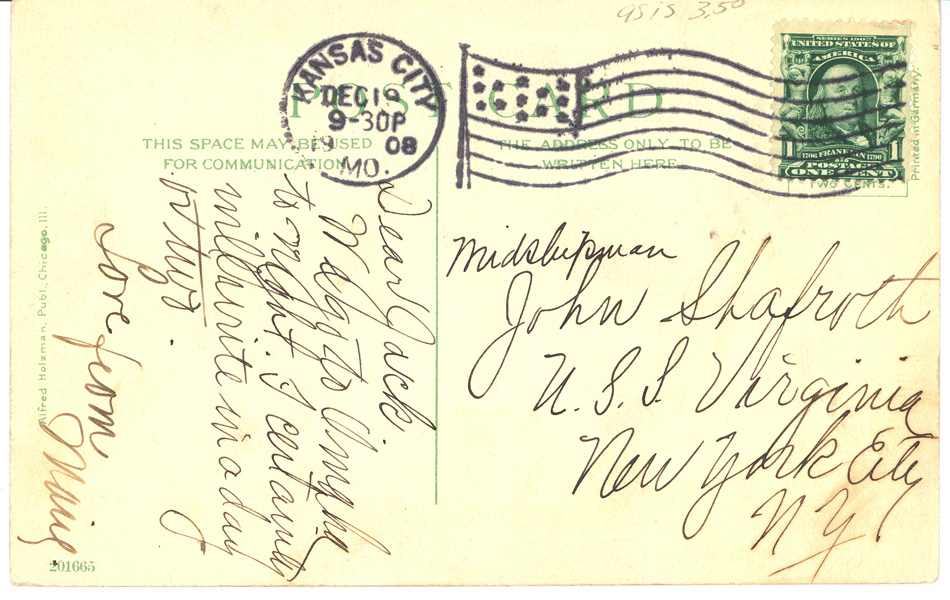 as is 3.50
KANSAS CITY
DEC 19
9-30P
19 08
MO.
SERIES 1902
UNITED STATES OF
AMERICA
1706 FRANKLIN 1790
POSTAGE
1 ONE CENT 1
TWO CENTS.
POST CARD
THIS SPACE MAY BE USED
FOR COMMUNICATION
THE ADDRESS ONLY TO BE
WRITTEN HERE
Printed in Germany.
Alfred Holzman, Publ., Chicago, Ill.
Dear Jack
We go to
tonight I
will write in a day
or two
Love from
Midshipman
John Shafroth
U.S.S. Virginia
New York City
N Y
201665